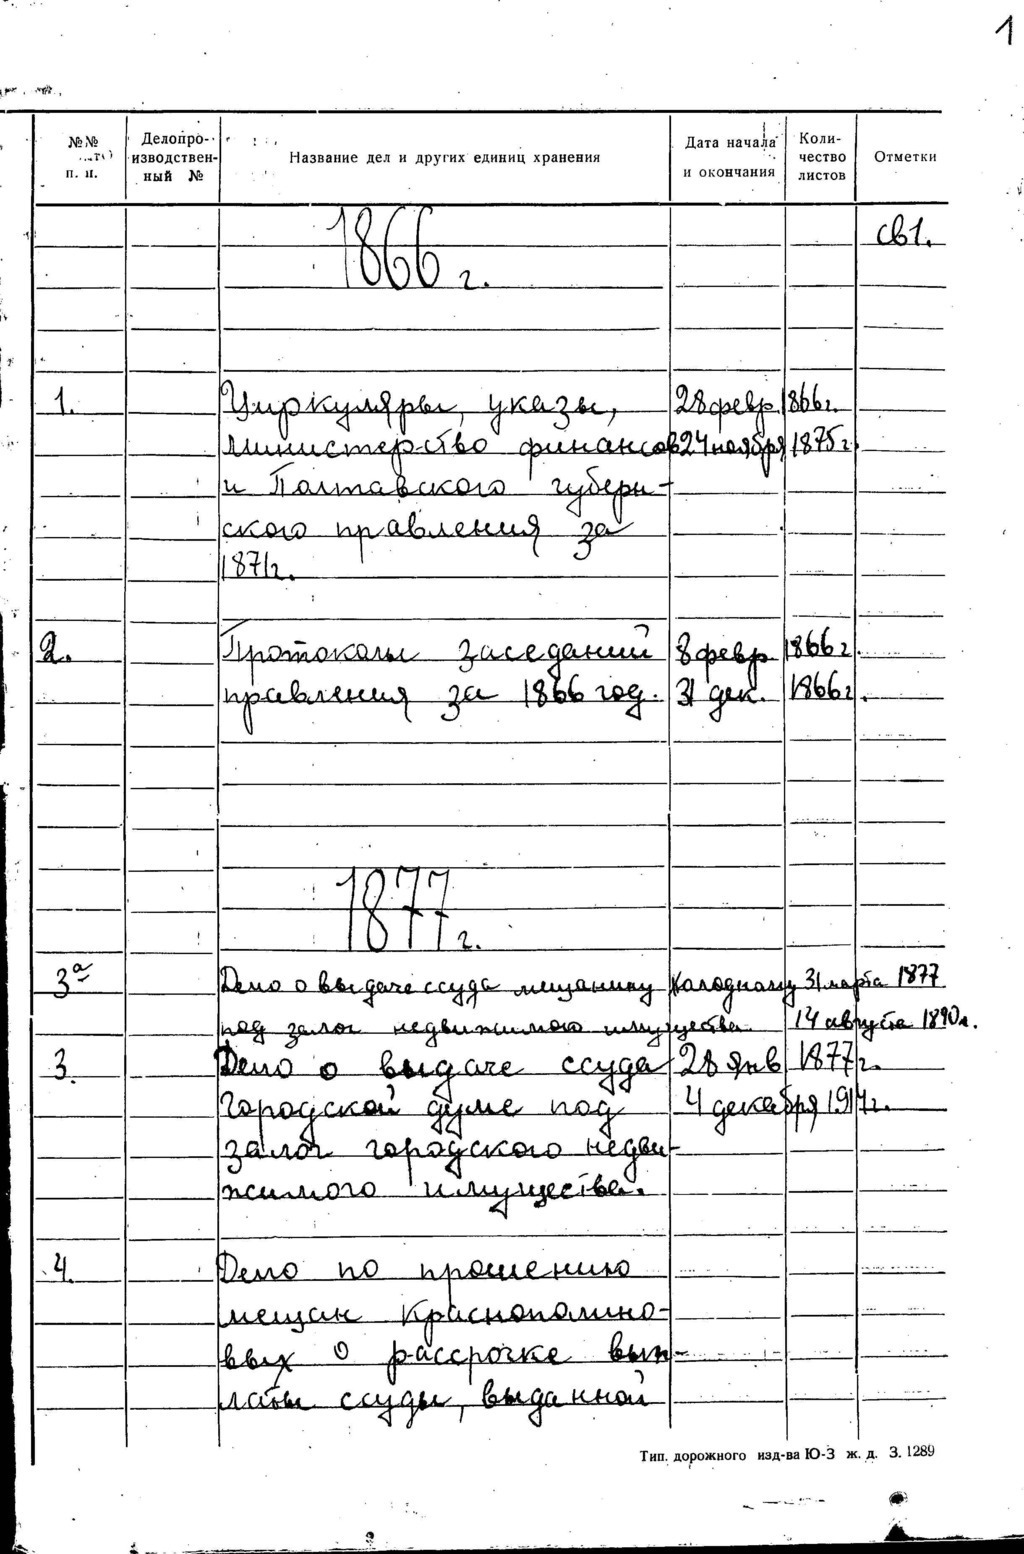 1
№№ п. п. Делопро- изводствен- ный № Название дел и других единиц хранения Дата начала и окончания Коли- чество листов Отметки
1866 г. св1.
1. Циркуляры, указы, 28 февр. 1866г.
министерство финансов 24 ноября 1875г
и Полтавского губерн-
ского правления за
1871г.
2. Протоколы заседаний 8 февр 1866г.
правления за 1866 год. 31 дек. 1866г.
1877 г.
3а Дело о выдаче ссуда мещанину Колодному 31 марта 1877
под залог недвижимого имущества 14 августа 1890г.
3. Дело о выдаче ссуда 28 янв 1877г.
городской думе под 4 декабря 1917г.
залог городского недви-
жимого имущества.
4. Дело по прошению
мещан Краснополино-
вых о рассрочке вып-
латы ссуды, выданной
Тип. дорожного изд-ва Ю-З ж. д. З. 1289